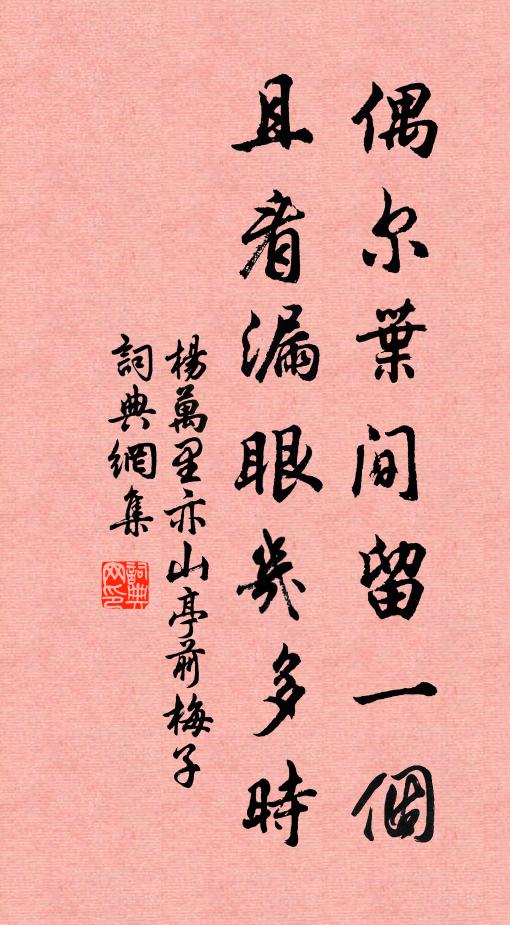 偶尔葉间留一個
且看漏眼幾多時
楊萬里亦山亭前梅子
詞典網集
詞典网印